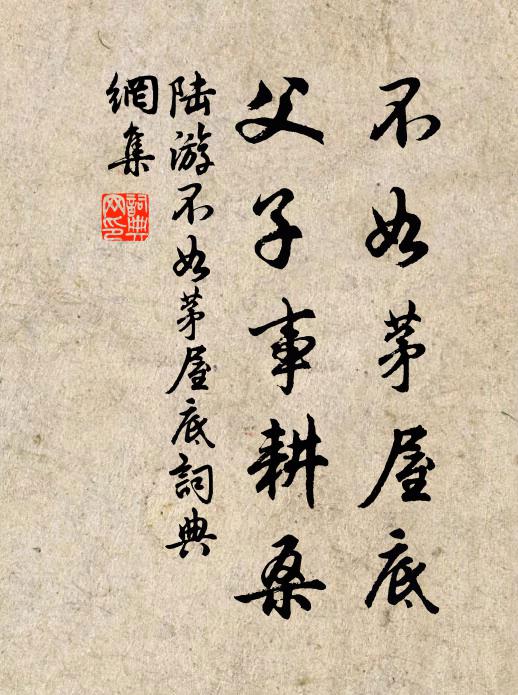 不如茅屋底
父子事耕桑
陆游不如茅屋底詞典
網集
詞典
网印